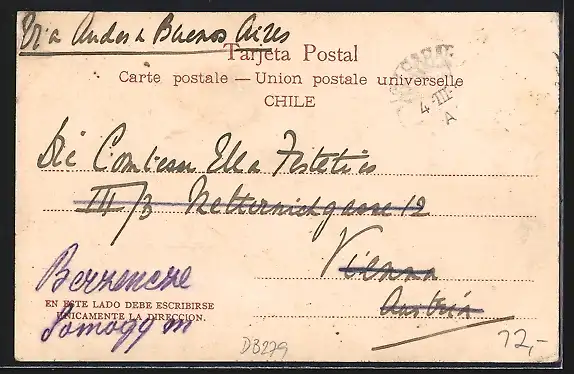 Via Andes a Buenos Aires
Tarjeta Postal
Carte postale — Union postale universelle
CHILE
4 III
A
Die Comtesse Ella Festetics
III/3 Metternichgasse 12
Vienna
Austria
Berzencze
EN ESTE LADO DEBE ESCRIBIRSE
UNICAMENTE LA DIRECCION.
Somogy m
DB279
12,-